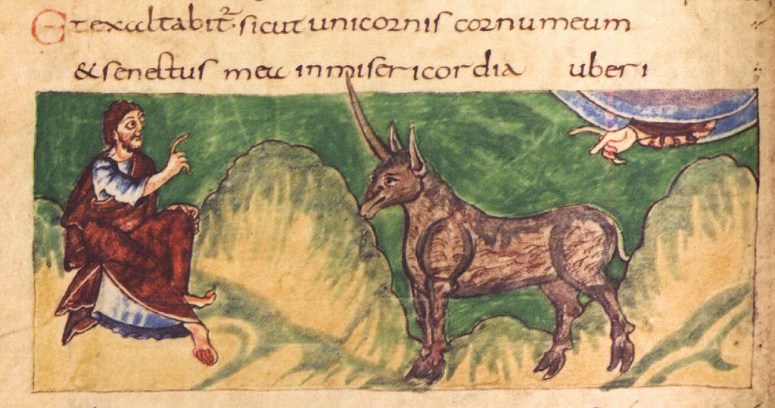 Et exaltabit᷑· sicut unicornis cornu meum
&senectus mea in misericordia uberi